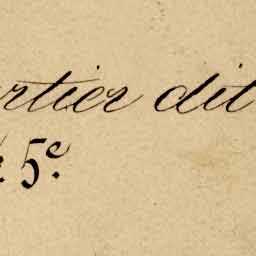 rtier dit
5e.